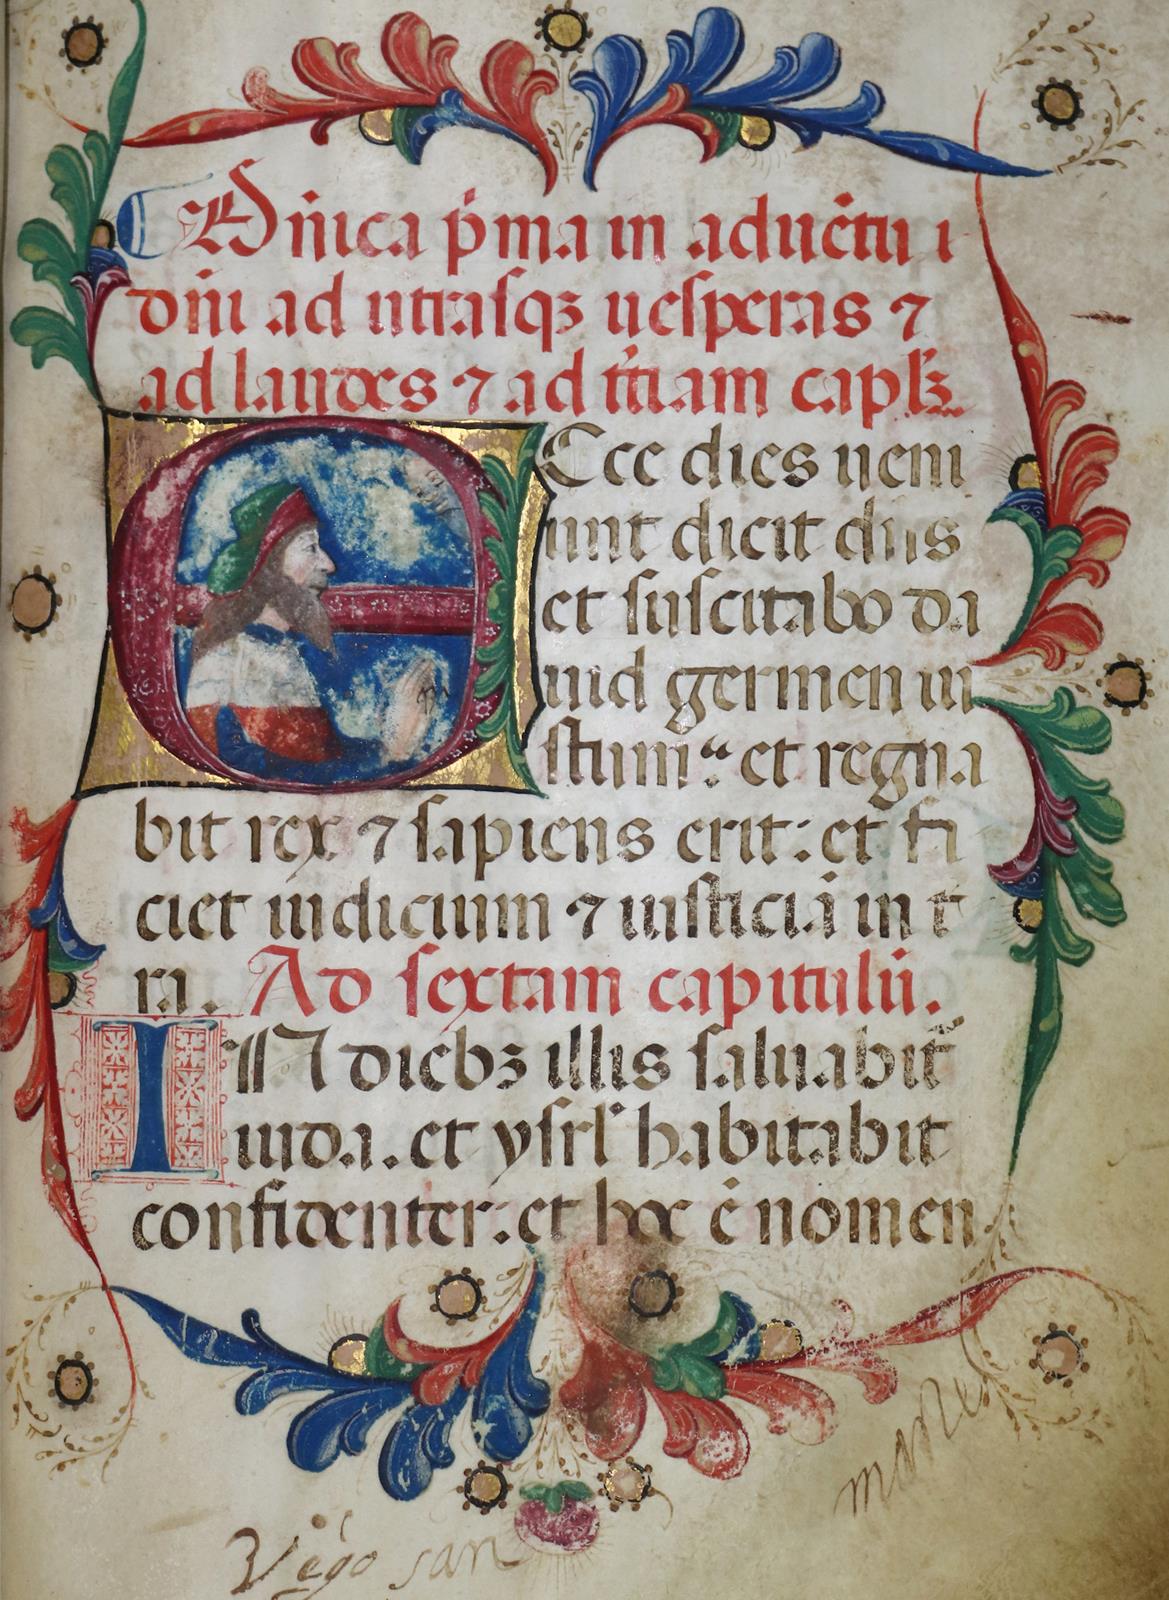 Dn̄ica p̄ma in aduētu ı
dn̄i ad utrasqꝫ uesperas ⁊
ad laudes ⁊ ad t̄tiam caplꝫ
Ecce dies ueni
unt dicit dn̄s
et suscitabo da
uid germen iu
stum: et regna
bit rex ⁊ sapiens erit: et fa
ciet iudicium ⁊ iusticiā in t
ra. Ad sextam capitulū.
IN diebꝫ illis saluabit̄
iuda. et ysrl' habitabit
confidenter: et hoc ē nomen
mane
Vego san